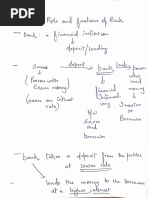 Role and functions of Bank
- Bank: a financial institution
↳ deposit/lending
Saver deposit bank lending person who need money
(Person with Excess money)
A Financial Intermediary
(earn an interest rate)
Investor or Borrower
B/w Saver and Borrower
- bank takes a deposit from the public at lower rate
lends the money to the borrower at a higher interest